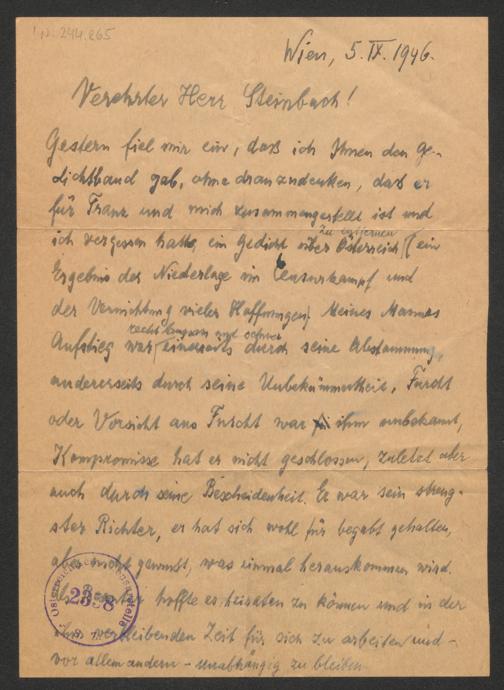 N. 244.265
Wien, 5. IX. 1946.
Verehrter Herr Steinbach!
Gestern fiel mir ein, daß ich Ihnen den Ge-
dichtband gab, ohne dranzudenken, daß er
für Franz und mich zusammengestellt ist und
zu entfernen
ich vergessen hatte, ein Gedicht über Österreich (ein
Ergebnis der Niederlage im Censurkampf und
der Vernichtung vieler Hoffnungen). Meines Mannes
recht langsam und schwer
Aufstieg war einerseits durch seine Abstammung,
andererseits durch seine Unbekümmertheit, Furcht
oder Vorsicht aus Furcht war ihm unbekannt,
Kompromisse hat er nicht geschlossen, zuletzt aber
auch durch seine Bescheidenheit. Er war sein streng-
ster Richter, er hat sich wohl für begabt gehalten,
aber nicht gewußt, was einmal herauskommen wird.
hoffte er heiraten zu können und in der
ihm verbleibenden Zeit für sich zu arbeiten und –
vor allem andern – unabhängig zu bleiben.
2398